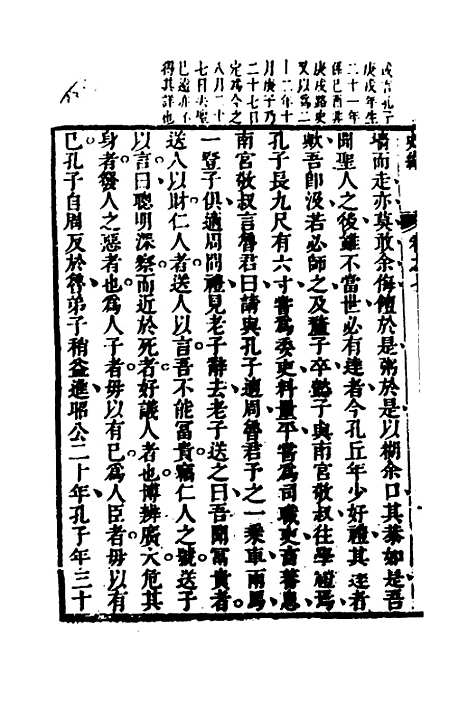 或言孔子
庚戌年生
二十一年
係己酉非
庚戌路史
又以爲二
十二年十
月庚子乃
二十七日
定爲今之
八月二十
七日去聖
已遠亦不
得其詳也
史緯
墻而走亦莫敢余侮饘於是粥於是以糊余口其恭如是吾
聞聖人之後雖不當世必有達者今孔丘年少好禮其達者
歟吾即沒若必師之及釐子卒懿子與南宮敬叔往學禮焉
孔子長九尺有六寸嘗爲委吏料量平嘗爲司職吏畜蕃息
南宮敬叔言魯君曰請與孔子適周魯君予之一乘車兩馬
一豎子俱適周問禮見老子辭去老子送之曰吾聞富貴者
送人以財仁人者送人以言吾不能富貴竊仁人之號送子
以言曰聰明深察而近於死者好議人者也博辨廣大危其
身者發人之惡者也爲人子者毋以有己爲人臣者毋以有
己孔子自周反於魯弟子稍益進昭公二十年孔子年三十